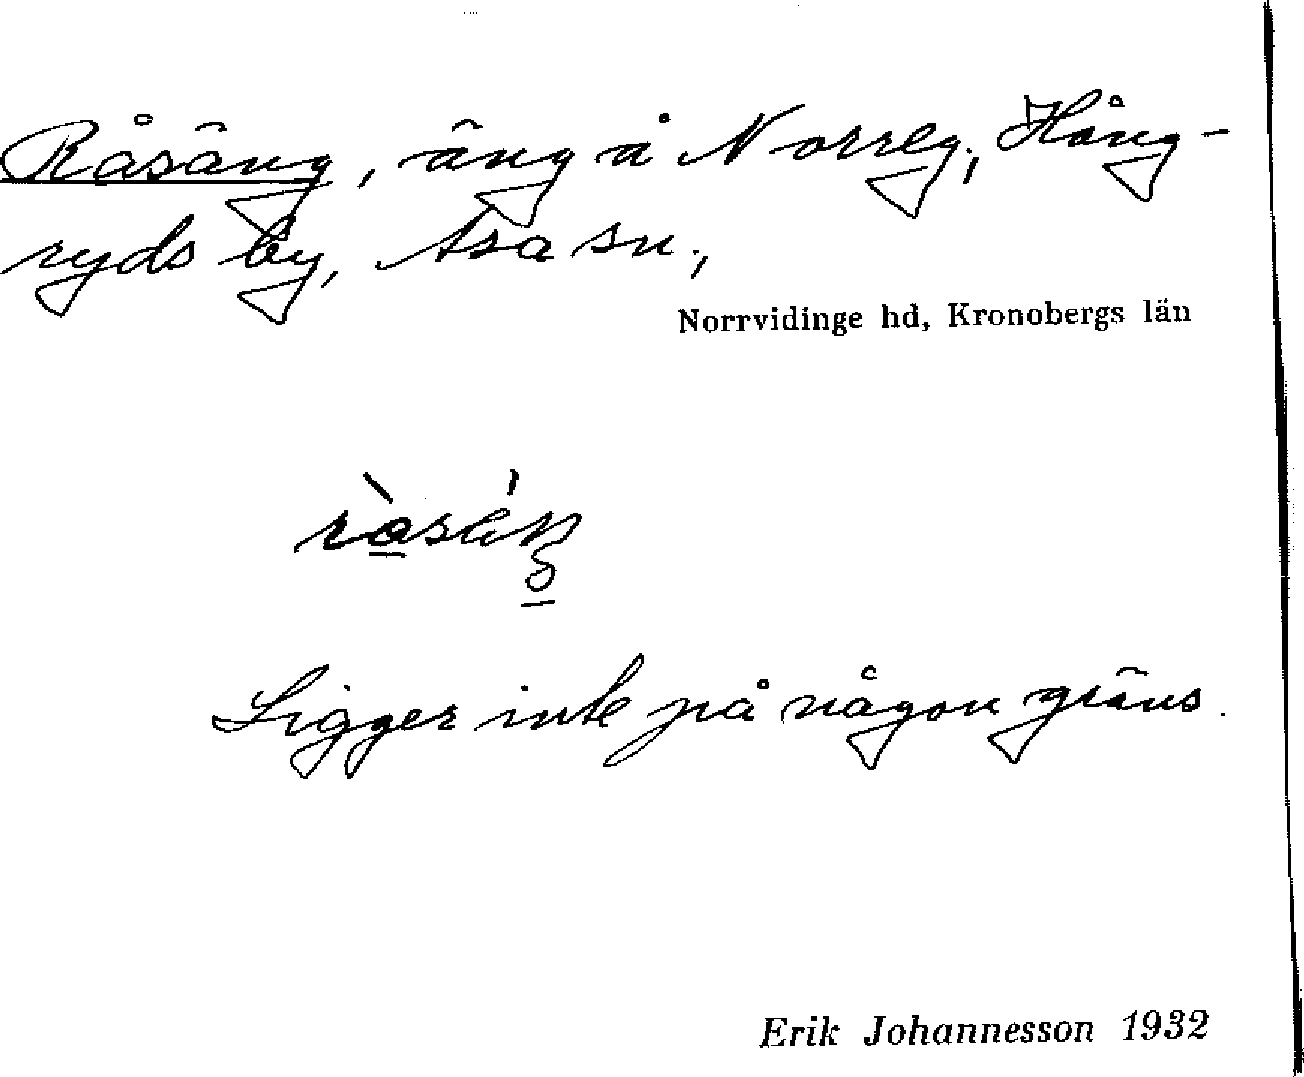 Råsäng, äng å Norreg., Hång-
ryds by, Asa sn.,
Norrvidinge hd, Kronobergs län
Ligger inte på någon gräns.
Erik Johannesson 1932